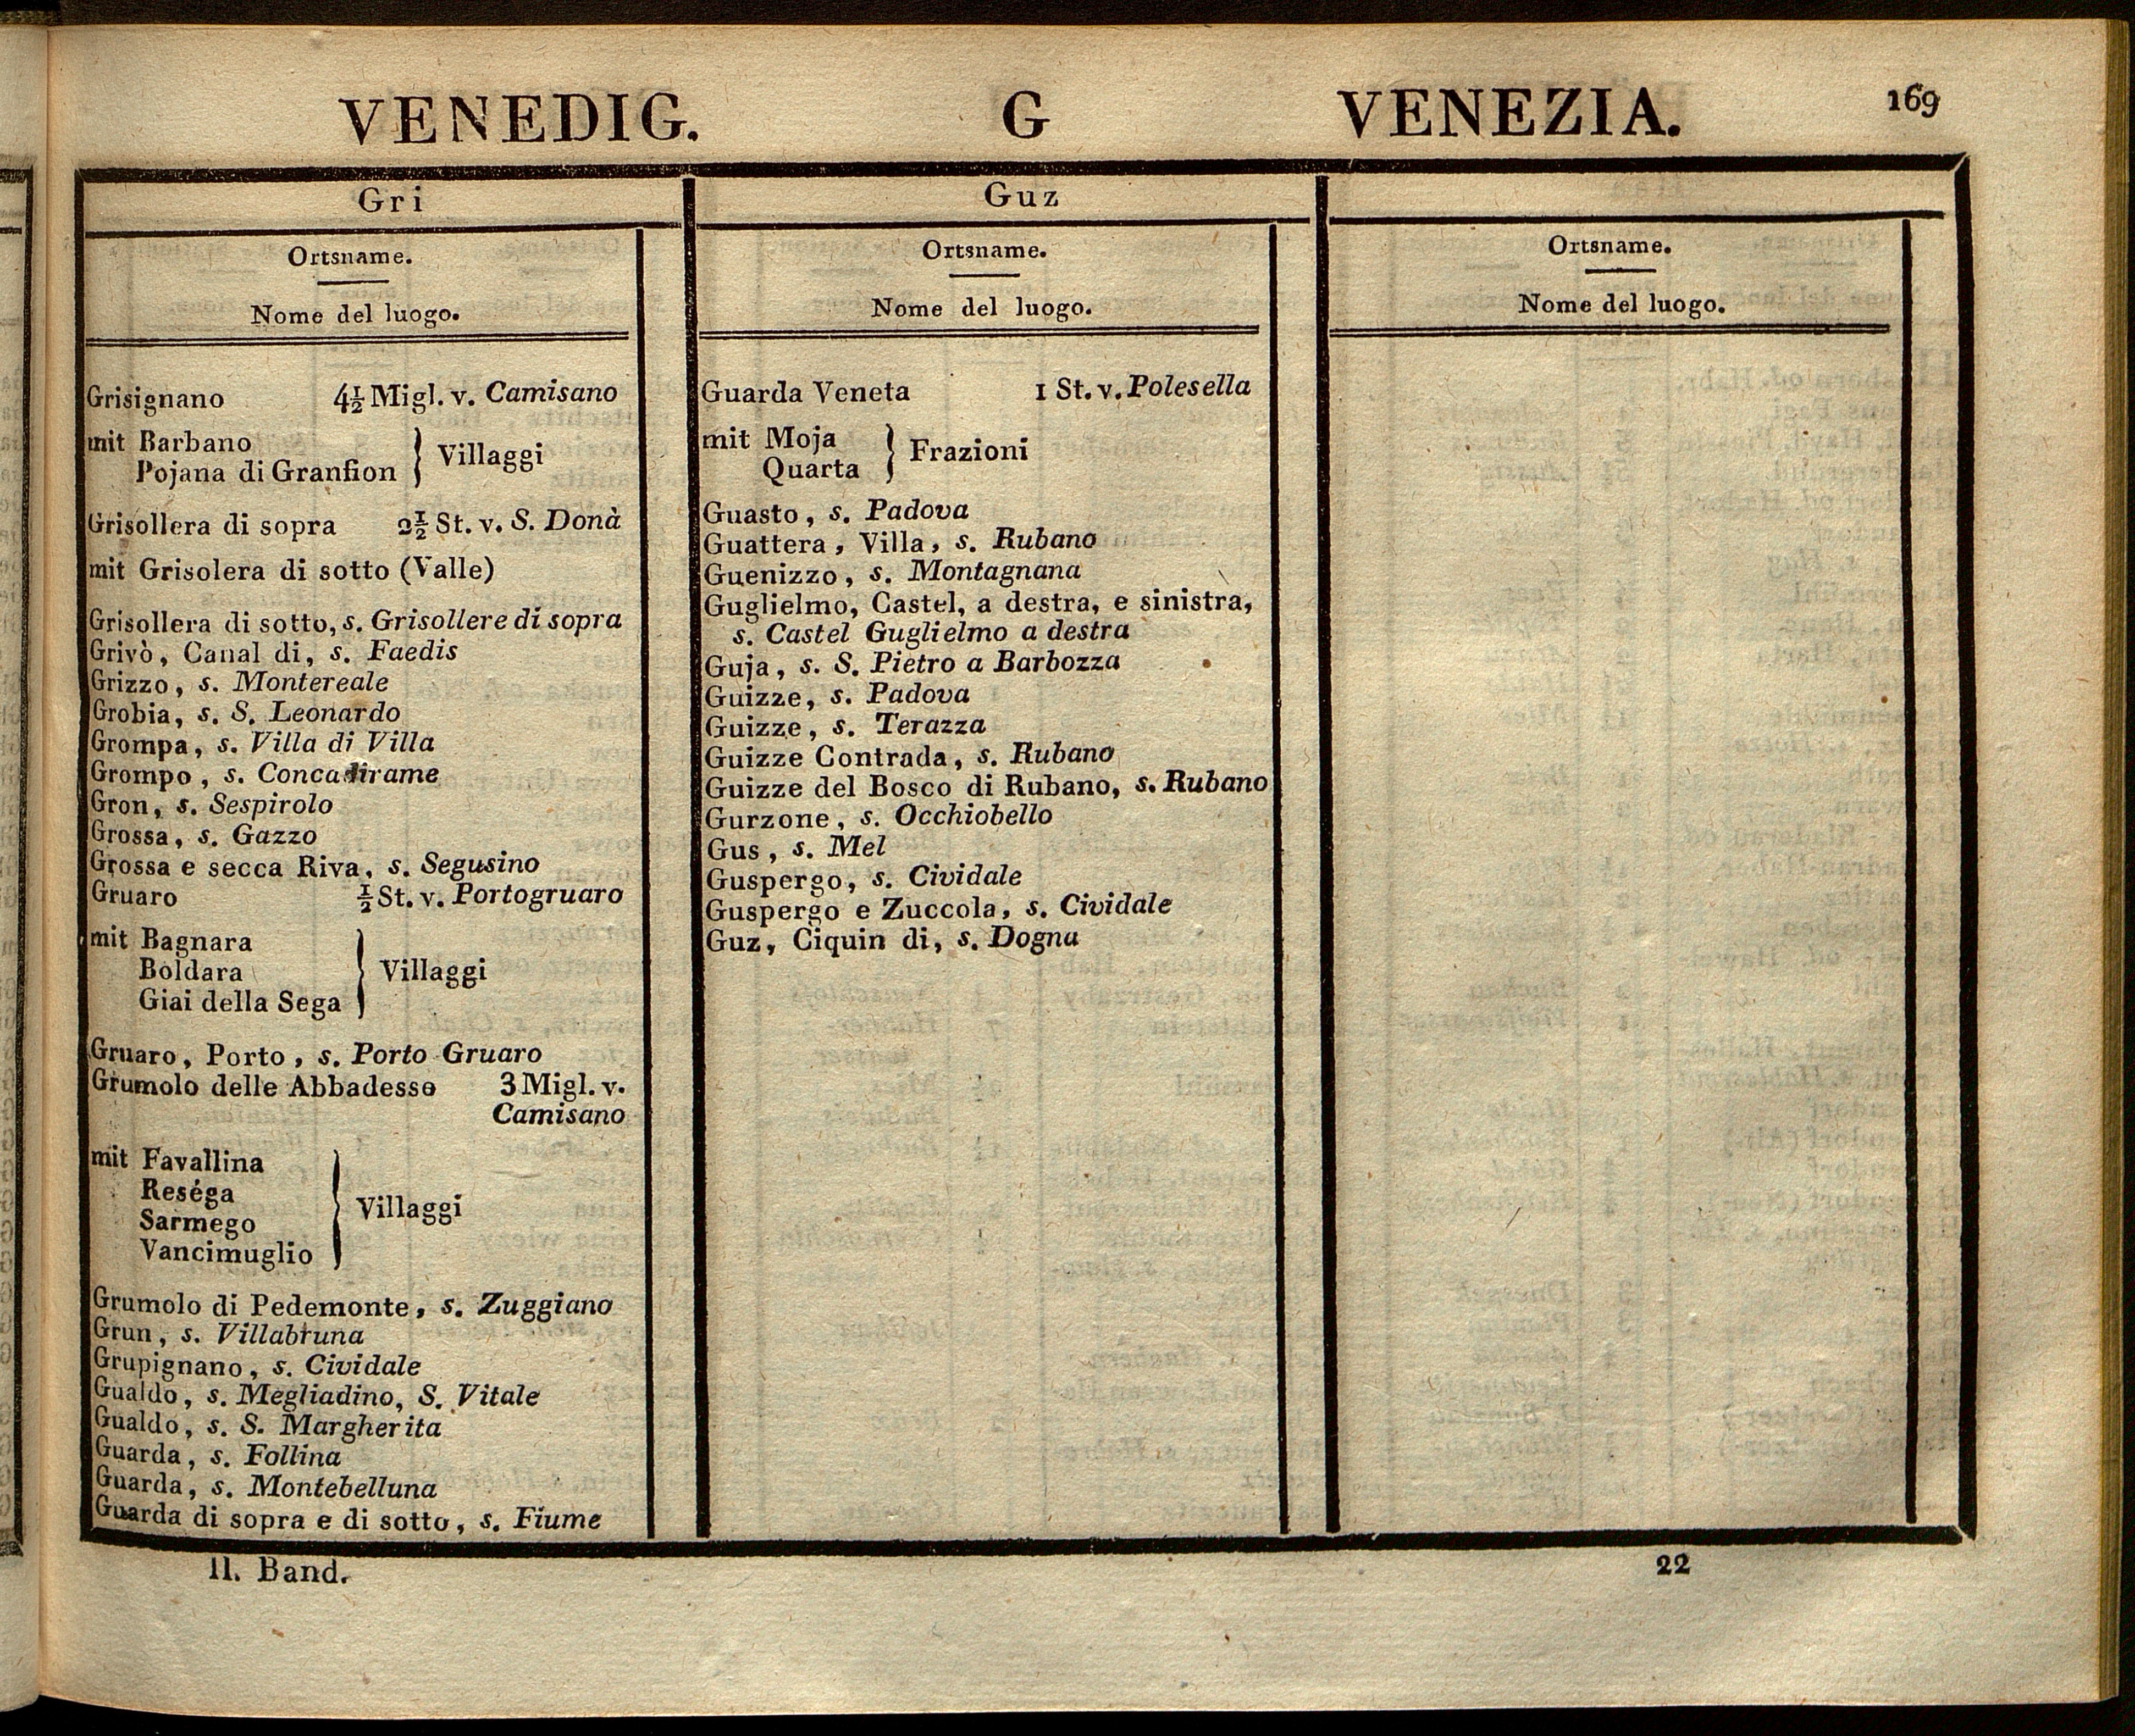 VENEDIG. G VENEZIA. 169
Gri
Ortsname.
Nome del luogo.
Grisignano 4½ Migl. v. Camisano
mit Barbano
Pojana di Granfion } Villaggi
Grisollera di sopra 2½ St. v. S. Donà
mit Grisolera di sotto (Valle)
Grisollera di sotto, s. Grisollere di sopra
Grivò, Canal di, s. Faedis
Grizzo, s. Montereale
Grobia, s. S. Leonardo
Grompa, s. Villa di Villa
Grompo, s. Concadirame
Gron, s. Sespirolo
Grossa, s. Gazzo
Grossa e secca Riva, s. Segusino
Gruaro ½ St. v. Portogruaro
mit Bagnara
Boldara } Villaggi
Giai della Sega
Gruaro, Porto, s. Porto Gruaro
Grumolo delle Abbadesse 3 Migl. v.
Camisano
mit Favallina
Reséga
Sarmego } Villaggi
Vancimuglio
Grumolo di Pedemonte, s. Zuggiano
Grun, s. Villabruna
Grupignano, s. Cividale
Gualdo, s. Megliadino, S. Vitale
Gualdo, s. S. Margherita
Guarda, s. Follina
Guarda, s. Montebelluna
Guarda di sopra e di sotto, s. Fiume
Guz
Ortsname.
Nome del luogo.
Guarda Veneta 1 St. v. Polesella
mit Moja
Quarta } Frazioni
Guasto, s. Padova
Guattera, Villa, s. Rubano
Guenizzo, s. Montagnana
Guglielmo, Castel, a destra, e sinistra,
s. Castel Guglielmo a destra
Guja, s. S. Pietro a Barbozza
Guizze, s. Padova
Guizze, s. Terazza
Guizze Contrada, s. Rubano
Guizze del Bosco di Rubano, s. Rubano
Gurzone, s. Occhiobello
Gus, s. Mel
Guspergo, s. Cividale
Guspergo e Zuccola, s. Cividale
Guz, Ciquin di, s. Dogna
Ortsname.
Nome del luogo.
II. Band. 22